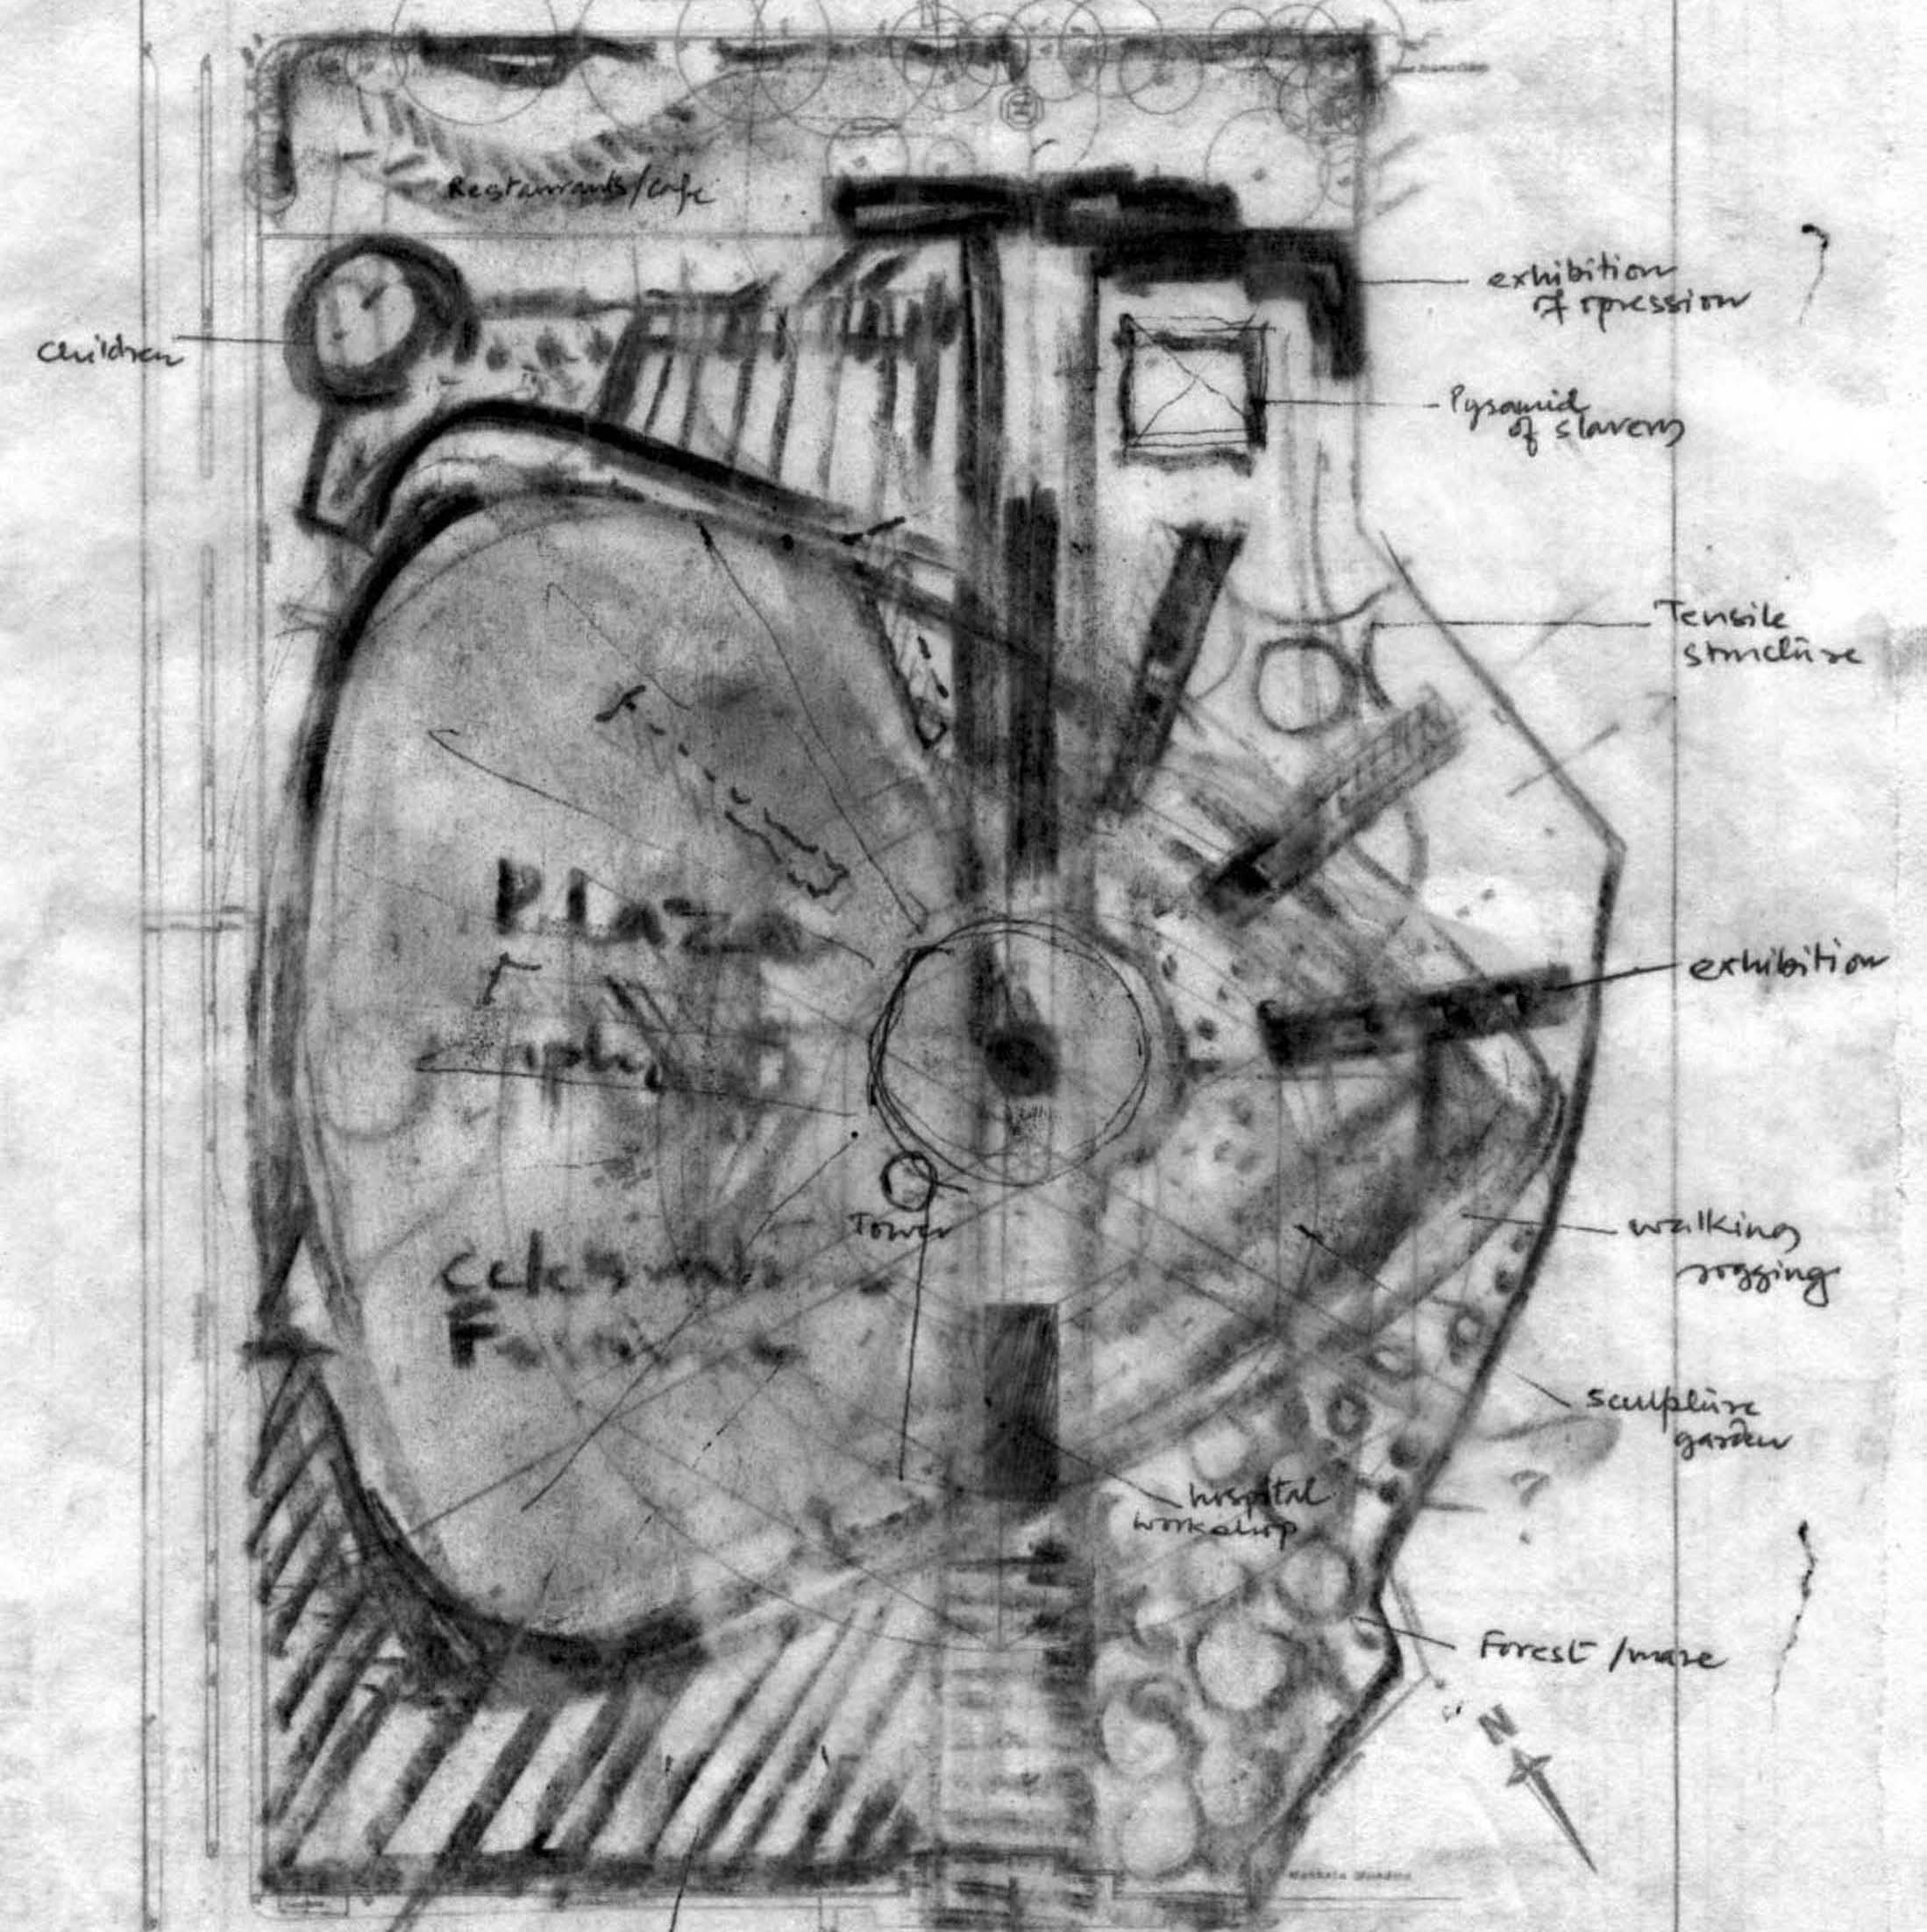 Restaurants/cafe
exhibition
of opression
children
Pyramid
of slavery
Tensile
structure
Plaza
exhibition
Tower
walking
jogging
sculpture
garden
hospital
workshop
Forest /maze
N